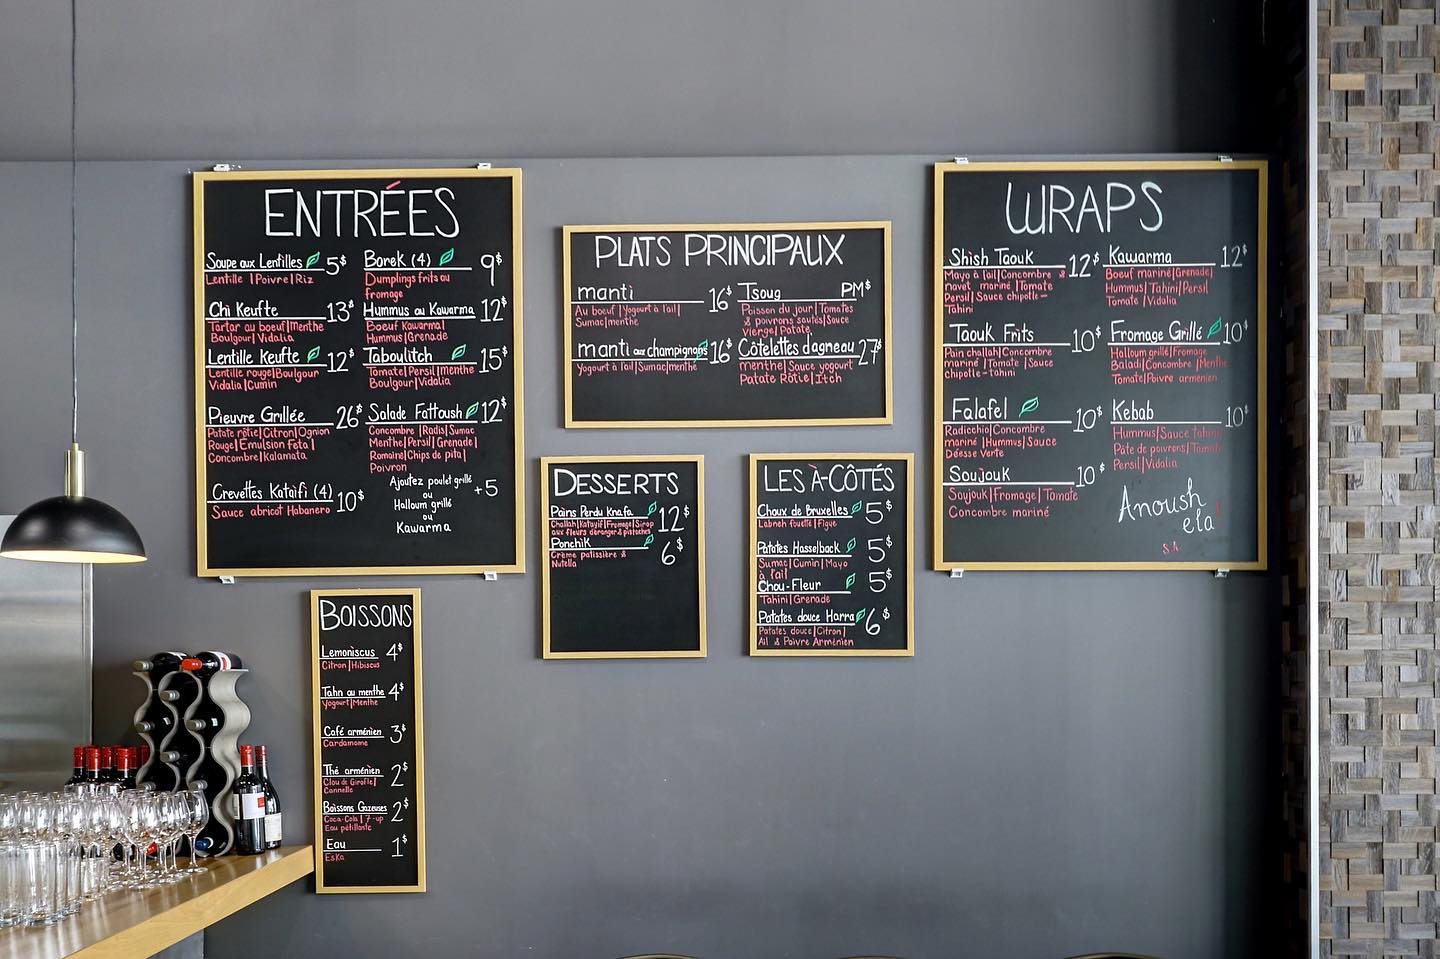 ENTRÉES
Soupe aux Lentilles 5$
Lentille | Poivre | Riz
Chi Keufte 13$
Tartar au boeuf | Menthe
Boulgour | Vidalia
Lentille Keufte 12$
Lentille rouge | Boulgour
Vidalia | Cumin
Pieuvre Grillée 26$
Patate rôtie | Citron | Ognion
Rouge | Emulsion Feta |
Concombre | Kalamata
Crevettes Kataifi (4) 10$
Sauce abricot Habanero
Borek (4) 9$
Dumplings frits au
fromage
Hummus au Kawarma 12$
Boeuf Kawarma |
Hummus | Grenade
Taboulitch 15$
Tomate | Persil | Menthe
Boulgour | Vidalia
Salade Fattoush 12$
Concombre | Radis | Sumac
Menthe | Persil | Grenade |
Romaine | Chips de pita |
Poivron
Ajoutez poulet grillé
ou
Halloum grillé +5
ou
Kawarma
PLATS PRINCIPAUX
manti 16$
Au boeuf | Yogourt à l'ail |
Sumac | menthe
manti aux champignons 16$
Yogourt à l'ail | Sumac | menthe
Tsoug PM$
Poisson du jour | Tomates
& poivrons sautés | Sauce
Vierge | Patate
Côtelettes d'agneau 27$
menthe | Sauce yogourt
Patate Rôtie | Itch
WRAPS
Shish Taouk 12$
Mayo à l'ail | Concombre &
navet mariné | Tomate
Persil | Sauce chipotle-
Tahini
Taouk Frits 10$
Pain challah | Concombre
mariné | Tomate | Sauce
chipotle-tahini
Falafel 10$
Radicchio | Concombre
mariné | Hummus | Sauce
Déesse Verte
Soujouk 10$
Soujouk | Fromage | Tomate
Concombre mariné
Kawarma 12$
Boeuf mariné | Grenade |
Hummus | Tahini | Persil
Tomate | Vidalia
Fromage Grillé 10$
Halloum grillé | Fromage
Baladi | Concombre | Menthe
Tomate | Poivre armenien
Kebab 10$
Hummus | Sauce tahini
Pâte de poivrons | Tomate
Persil | Vidalia
Anoush
ela!
S.A
DESSERTS
Pains Perdu Knafa 12$
Challah | Katayif | Fromage | Sirop
aux fleurs d'oranger & pistaches
Ponchik 6$
Crème patissière &
Nutella
LES À-CÔTÉS
Choux de Bruxelles 5$
Labneh fouetté | Figue
Patates Hasselback 5$
Sumac | Cumin | Mayo
à l'ail
Chou-Fleur 5$
Tahini | Grenade
Patates douce Harra 6$
Patates douce | Citron |
Ail & Poivre Arménien
BOISSONS
Lemoniscus 4$
Citron | Hibiscus
Tahn au menthe 4$
Yogourt | Menthe
Café arménien 3$
Cardamome
Thé arménien 2$
Clou de Girofle |
Cannelle
Boissons Gazeuses 2$
Coca-Cola | 7-up
Eau pétillante
Eau 1$
Eska